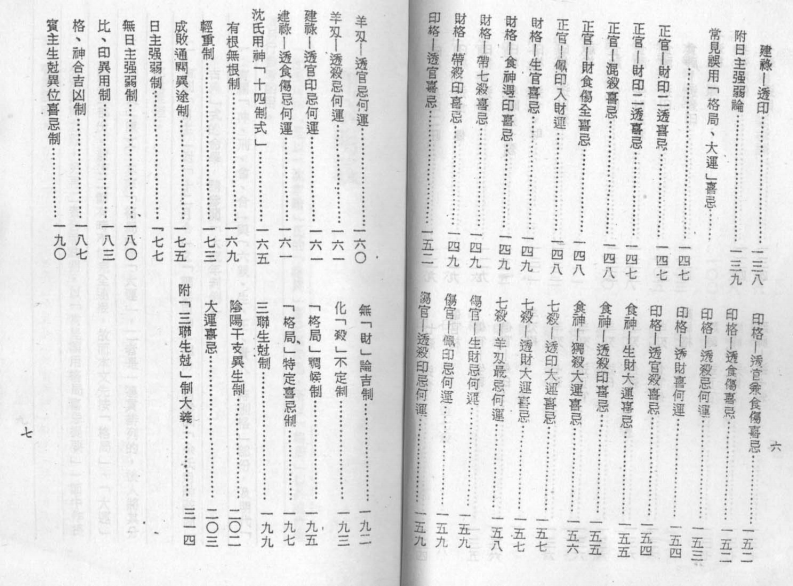 建祿—透印……一三八
附日主强弱論……一三九
常見誤用「格局、大運」喜忌
……一四七
正官—財印二透喜忌……一四七
正官—財印二透喜忌……一四七
正官—財食傷全喜忌……一四八
正官—混殺喜忌……一四八
正官—佩印入財運……一四八
財格—生官喜忌……一四九
財格—食神遇印喜忌……一四九
財格—帶七殺喜忌……一四九
財格—帶殺印喜忌……一四九
印格—透官喜忌……一五二
印格—透官兼食傷喜忌……一五二
印格—透食傷喜忌……一五二
印格—透殺忌何運……一五三
印格—透財喜何運……一五四
印格—透官殺喜忌……一五四
食神—生財大運喜忌……一五五
食神—透殺印喜忌……一五五
食神—獨殺大運喜忌……一五六
七殺—透印大運喜忌……一五七
七殺—透財大運喜忌……一五七
七殺—羊刄最忌何運……一五八
傷官—生財忌何運……一五九
傷官—佩印忌何運……一五九
傷官—透殺印忌何運……一五九
六
羊刄—透官忌何運……一六〇
羊刄—透殺忌何運……一六一
建祿—透官印忌何運……一六一
建祿—透食傷忌何運……一六一
沈氏用神「十四制式」……一六五
有根無根制……一六九
輕重制……一七三
成敗通關異途制……一七五
日主强弱制……一七七
無日主强弱制……一八〇
比、印異用制……一八三
格、神合吉凶制……一八七
賓主生尅異位喜忌制……一九〇
無「財」論吉制……一九二
化「殺」不定制……一九三
「格局」調候制……一九五
「格局」特定喜忌制……一九七
三聯生尅制……一九九
陰陽干支異生制……二〇二
大運喜忌……二〇三
附「三聯生尅」制大義……三一四
七